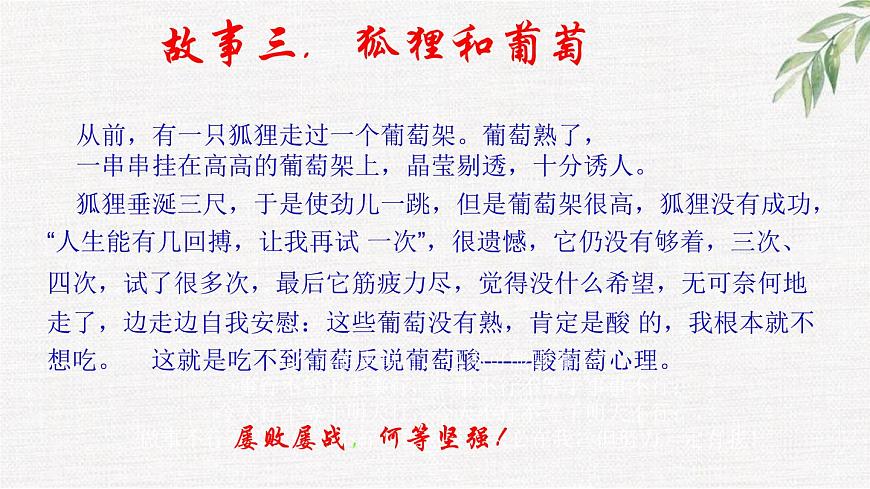 故事三. 狐狸和葡萄
从前，有一只狐狸走过一个葡萄架。葡萄熟了，
一串串挂在高高的葡萄架上，晶莹剔透，十分诱人。
狐狸垂涎三尺，于是使劲儿一跳，但是葡萄架很高，狐狸没有成功，
“人生能有几回搏，让我再试 一次”，很遗憾，它仍没有够着，三次、
四次，试了很多次，最后它筋疲力尽，觉得没什么希望，无可奈何地
走了，边走边自我安慰：这些葡萄没有熟，肯定是酸 的，我根本就不
想吃。 这就是吃不到葡萄反说葡萄酸-------酸葡萄心理。
屡败屡战，何等坚强！